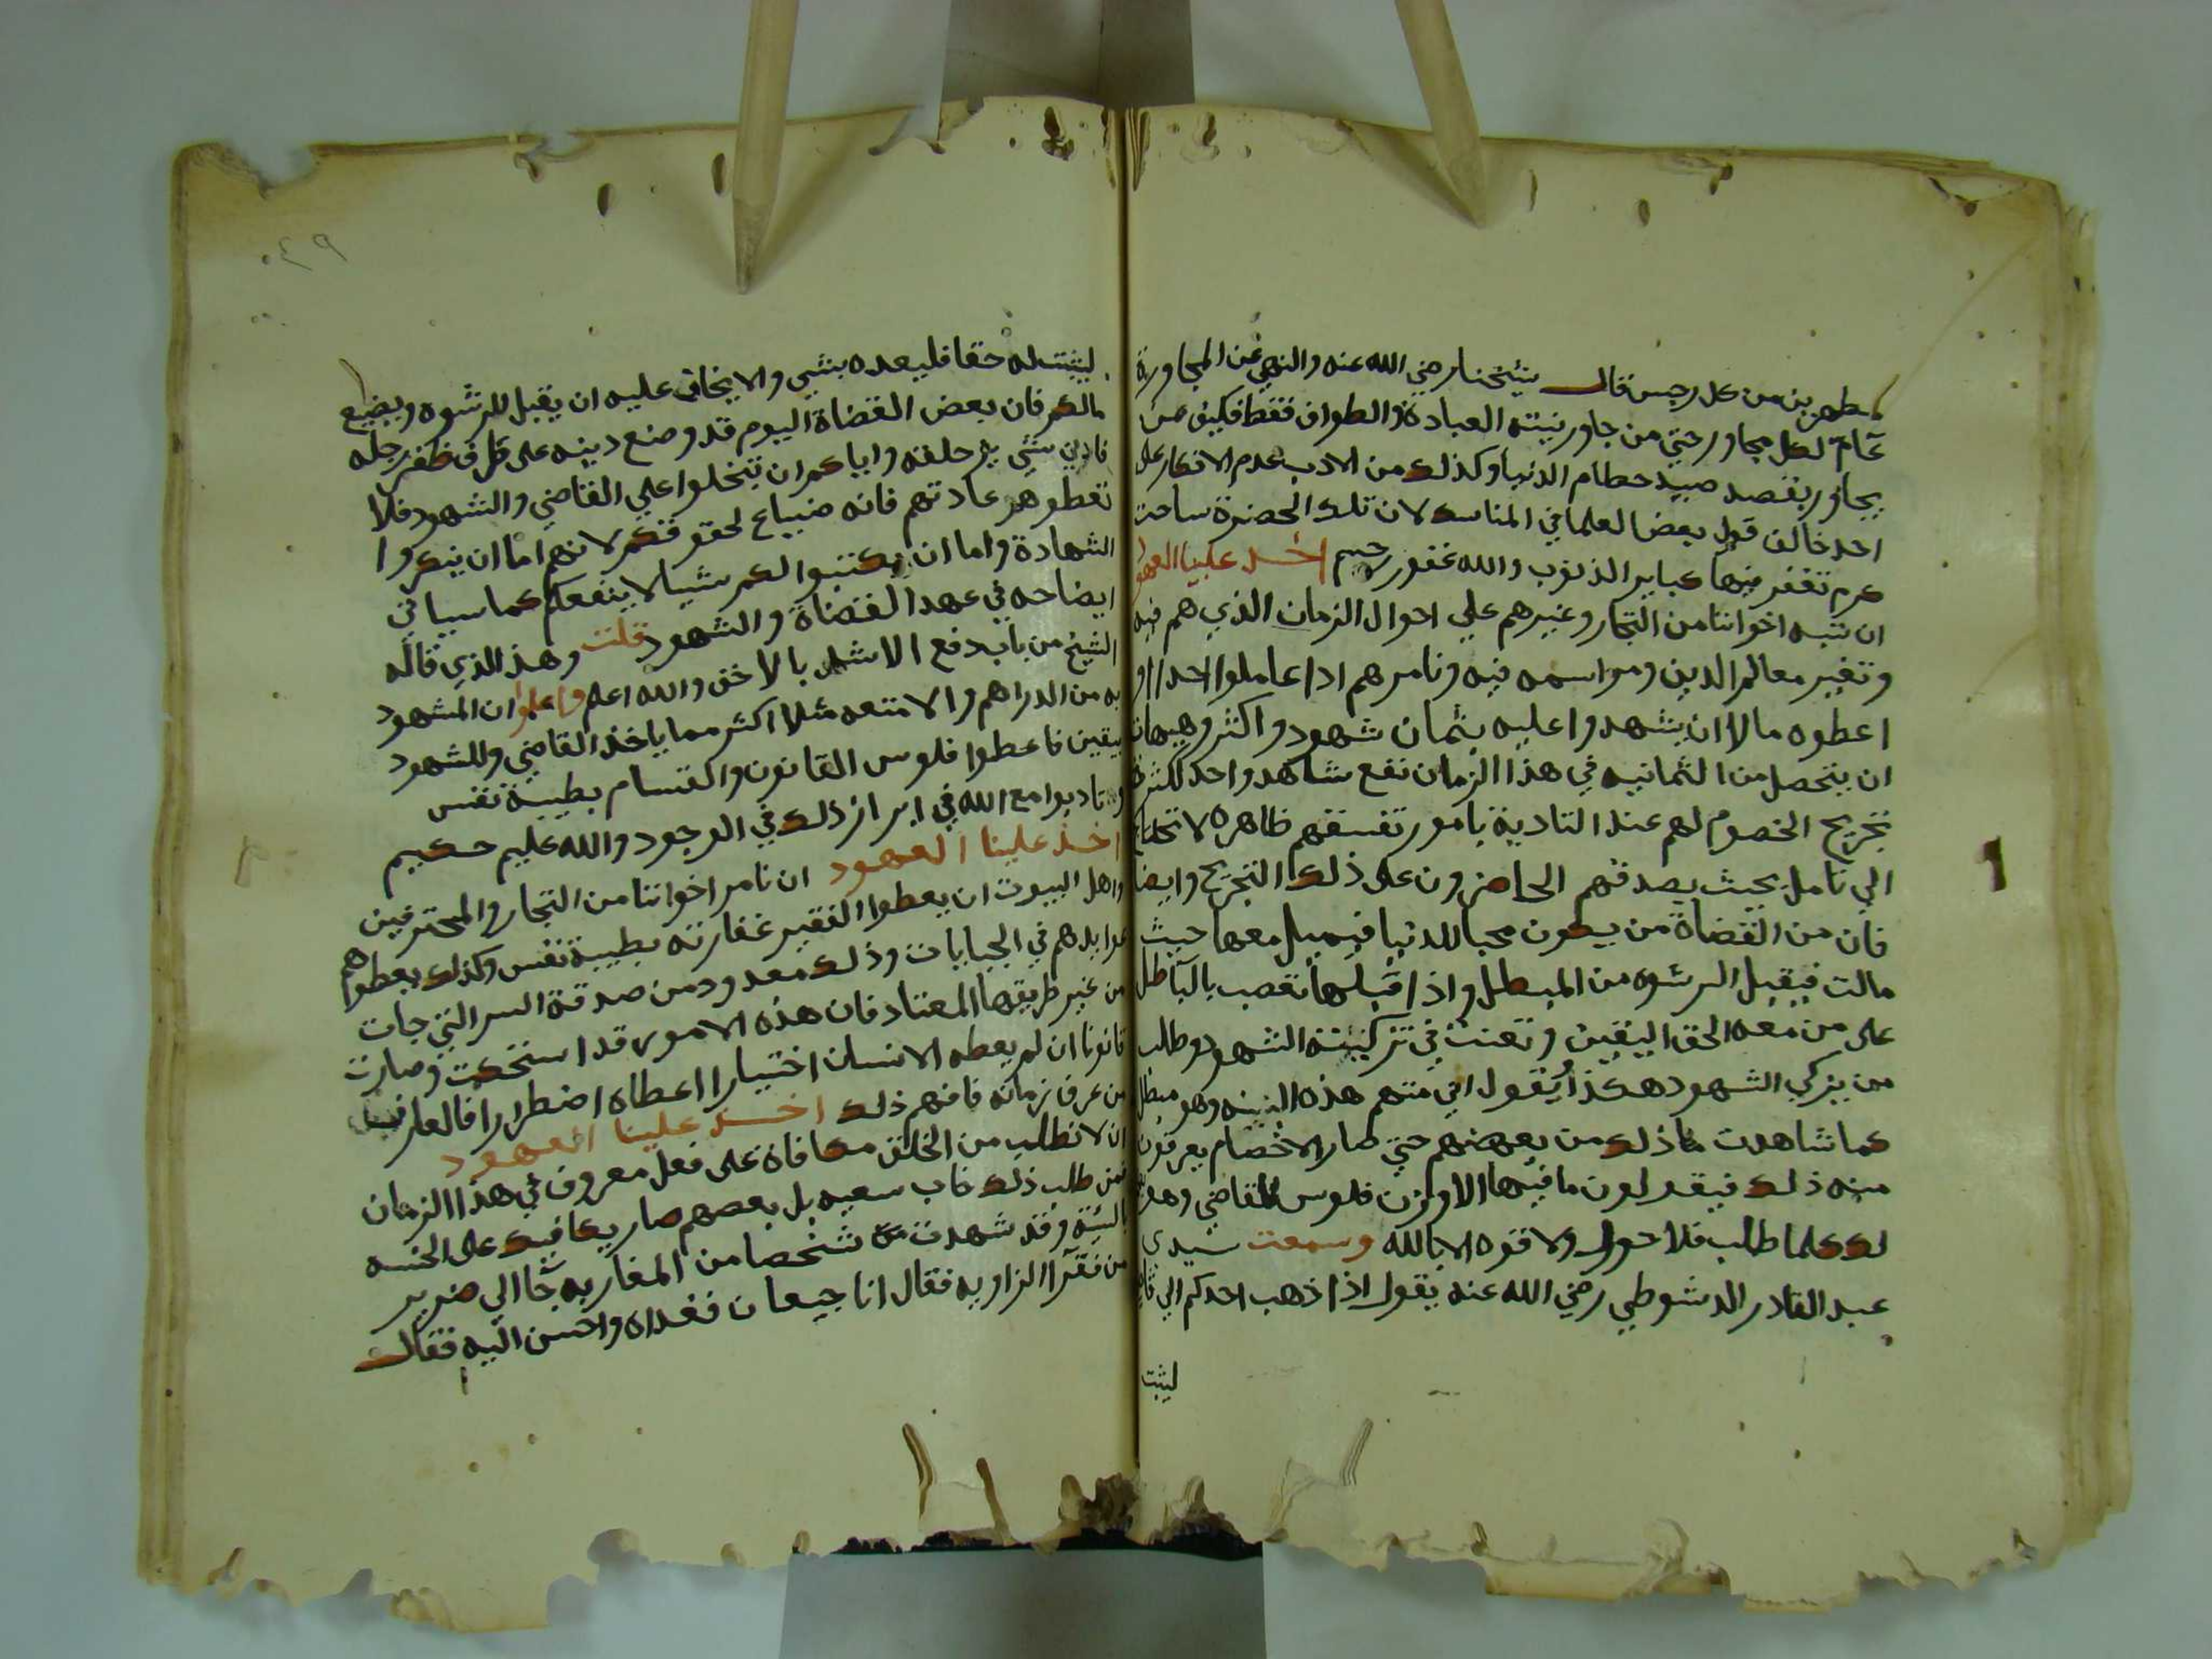 مطهرين من كل رجس قال شيخنا رضي الله عنه والنهي عن المجاورة
عام لكل مجاور حتي من جاور بنيته العبادة والطواف فقط فكيف بمن
يجاور بقصد صيد حطام الدنيا وكذلك من الادب عدم الانكار على
احد خالف قول بعض العلما في المناسك لان تلك الحضرة ساحت
كرم تغفر فيها كباير الذنوب والله غفور رحيم اخذ علينا العهود
ان ننبه اخواننا من التجار وغيرهم علي احوال الزمان الذي هم فيه
وتغير معالم الدين ومواسمه فيه ونامرهم اذا عاملوا احدا او
اعطوه مالا ان يشهدوا عليه بثمان شهود واكثر وهيهات
ان يتحصل من الثمانيه في هذا الزمان نفع شاهد واحد لكثرة
تجريح الخصوم لهم عند التادية بامور تفسقهم ظاهره لا تحتاج
الي تامل بحيث يصدقهم الحاضرون على ذلك التجريح وايضا
فان من القضاة من يكون محبا للدنيا فيميل معها حيث
مالت فيقبل الرشوه من المبطل واذا قبلها تعصب بالباطل
على من معه الحق اليقين وتعنت في تزكيته الشهود وطالب
من يزكي الشهود هكذا يقول اني متهم هذه البينه وهو مبطل
كما شاهدت ذلك من بعضهم حتي صار الاخصام يعرفون
منه ذلك فيقولون ما فيها الا وزن فلوس للقاضي وهو
لك كلما طالب فلا حول ولا قوه الا بالله وسمعت سيدي
عبد القادر الدشوطي رضي الله عنه يقول اذا ذهب احدكم الي قاض
ليثبت
٤٩
ليثبت له حقا فليعده بشي والا يخاف عليه ان يقبل الرشوه ويضيع
مالكم فان بعض القضاة اليوم قد وضع دينه على طرف ظفر رجله
فادني شي يزحلفه واياكم ان تتخلوا علي القاضي والشهود فلا
تعطوهم عادتهم فانه ضياع لحقوقكم لانهم اما ان ينكروا
الشهادة واما ان يكتبوا لكم شيا لا ينفعكم كما سياتي
ايضاحه في عهد القضاة والشهود قلت وهذا الذي قاله
الشيخ من باب دفع الاشد بالاخف والله اعلم واعلموا ان المشهود
به من الدراهم والامتعه مثلا اكثر مما ياخذ القاضي والشهود
بيقين فاعطوا فلوس القانون والقسام بطيبة نفس
وتادبوا مع الله في ابراز ذلك في الوجود والله عليم حكيم
اخذ علينا العهود ان نامر اخواننا من التجار والمحترفين
واهل البيوت ان يعطوا الفقير غفارته بطيبة نفس وكذلك يعطوا هم
عوايدهم في الجبايات وذلك معدود من صدقة السر التي جات
من غير طريقها المعتاد فان هذه الامور قد استحكمت وصارت
قانونا ان لم يعطه الانسان اختيارا اعطاه اضطرارا فالعارف
من عرف زمانه فافهم ذلك اخذ علينا العهود
ان لا نطلب من الخلق مكافاة على فعل معروف في هذا الزمان
فمن طلب ذلك خاب سعيه بل بعضهم صار يكافيك على الحسنه
بالسيئة وقد شهدت شخصا من المغاربه جا الي ضرير
من فقرا الزاويه فقال انا جيعان فغداه واحسن اليه فقال